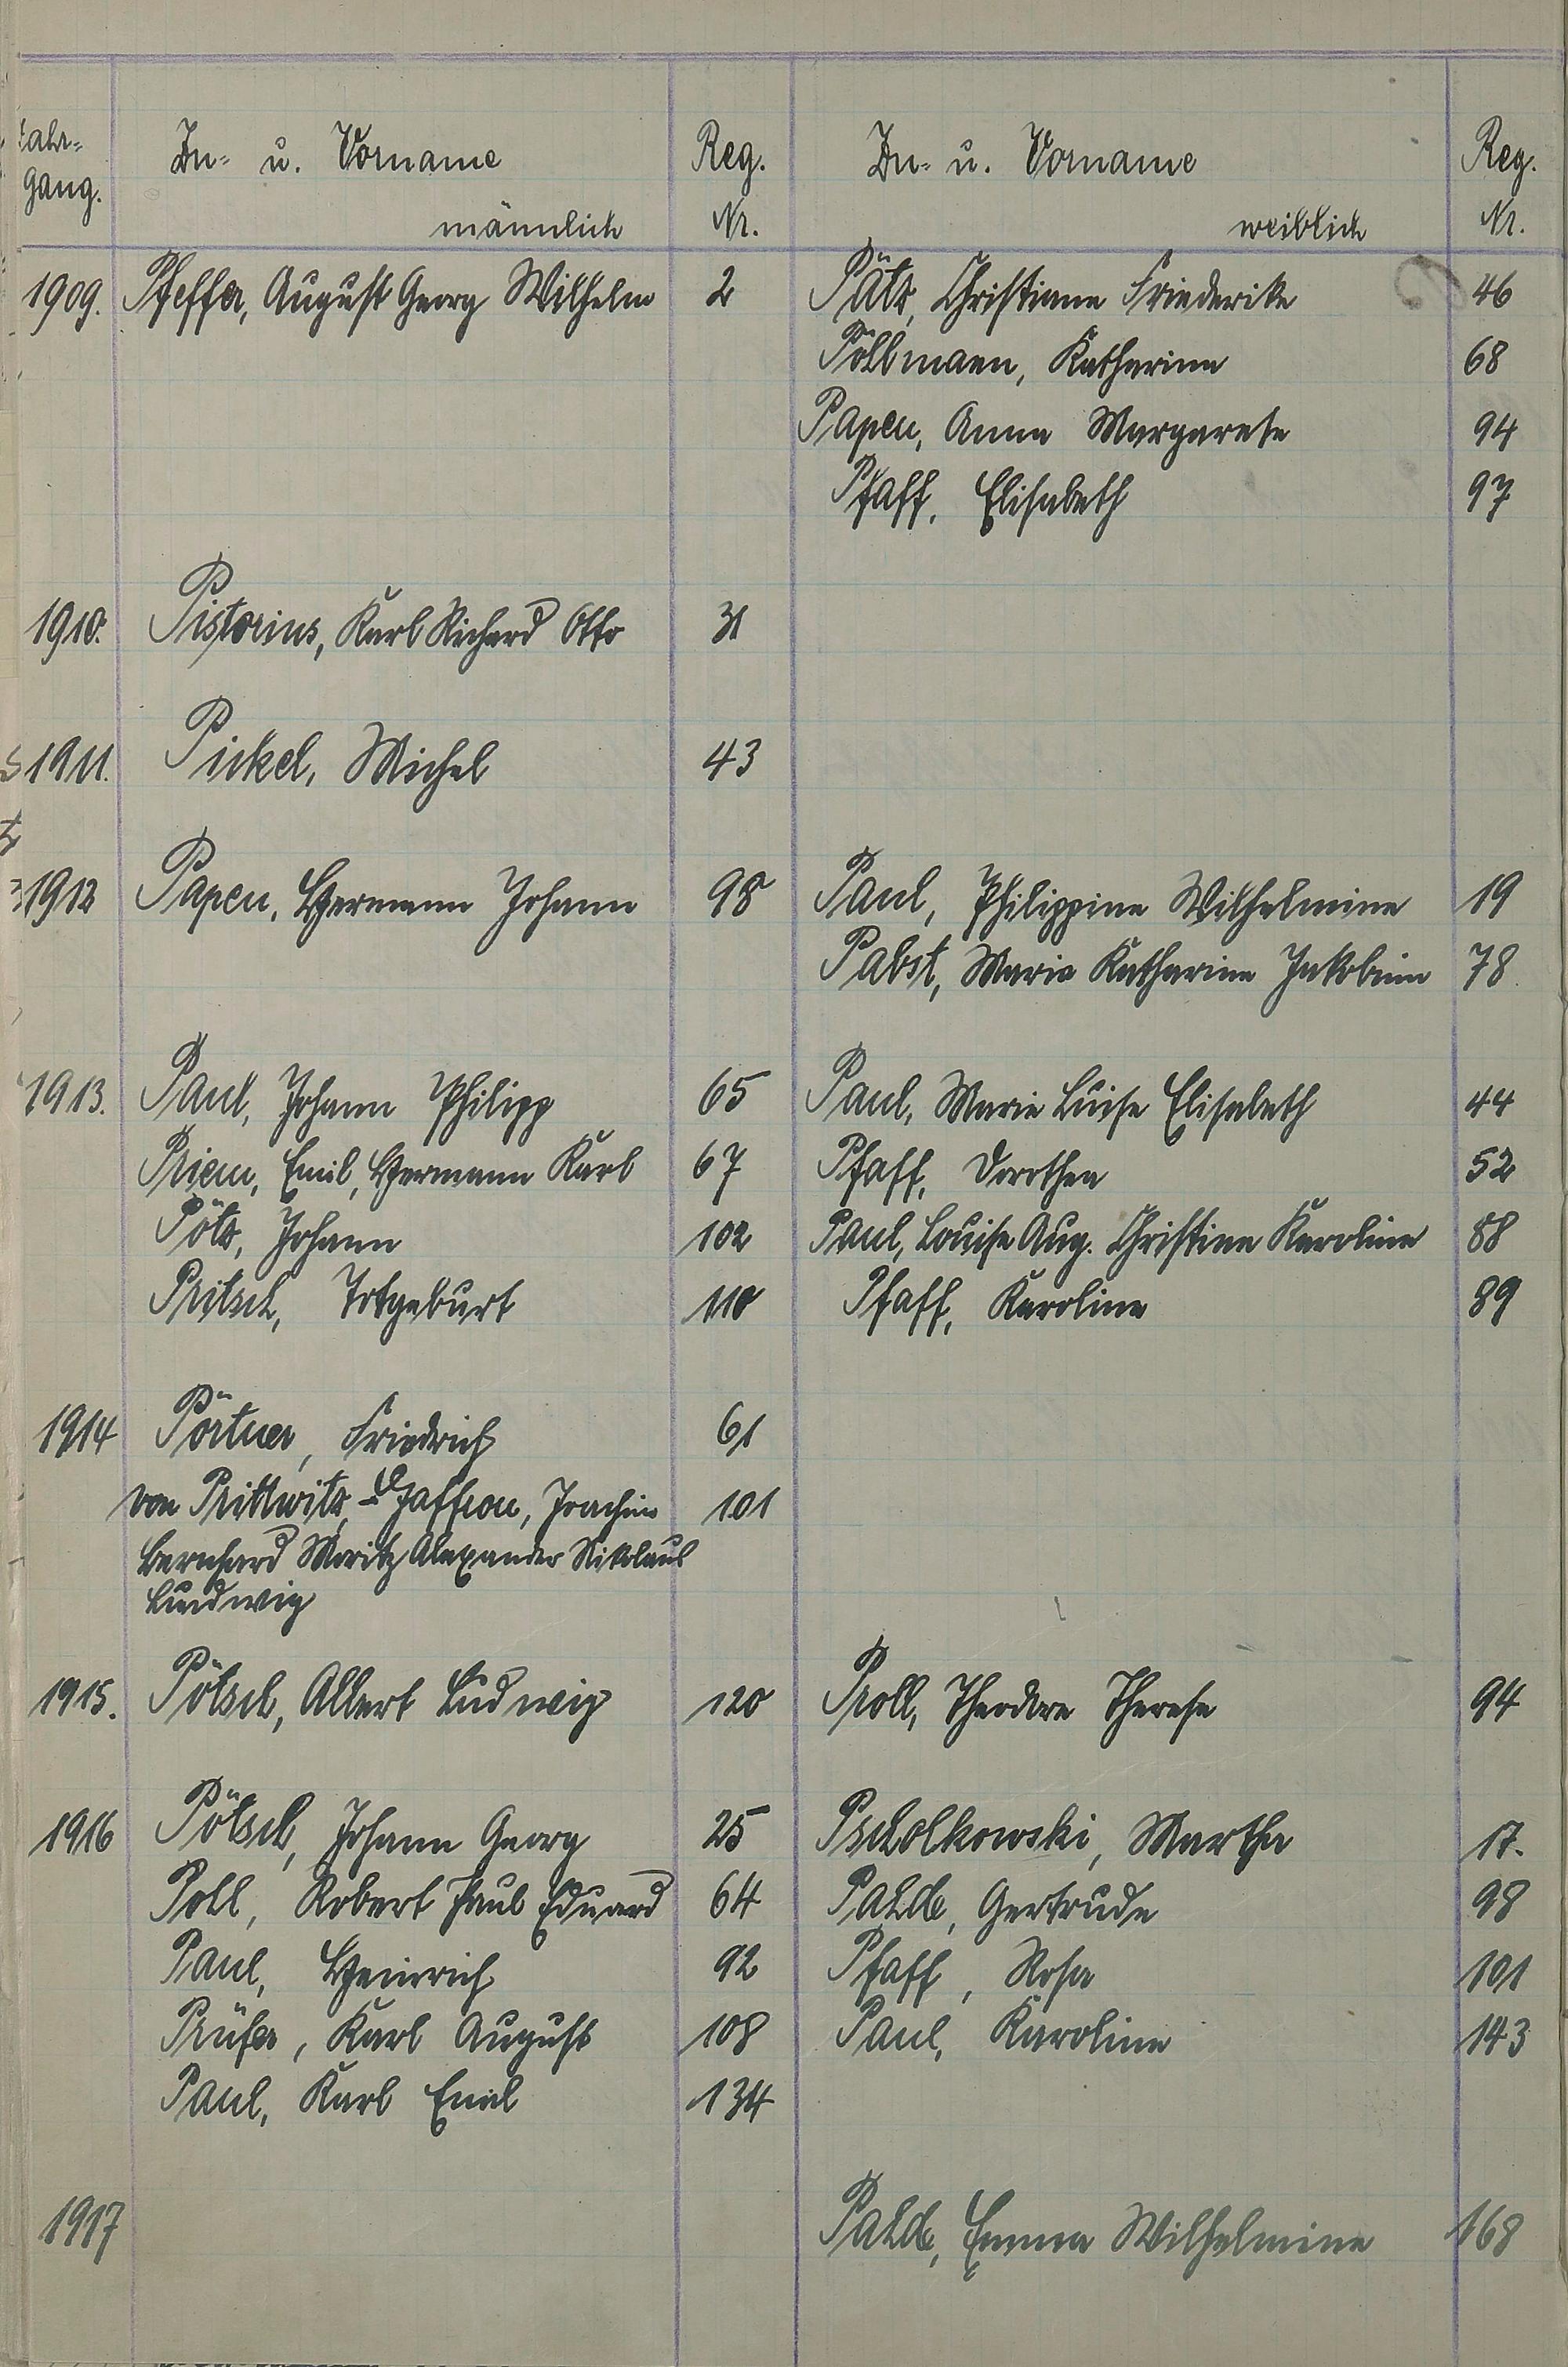 Jahr= Zu= u. Vorname Reg. Zu= u. Vorname Reg.
gang. männlich Nr. weiblich Nr.
1909. Pfeffer, August Georg Wilhelm 2 Pätz, Christiane Friederike 46
Pöllmann, Katharina 68
Papen, Anna Margarete 94
Pfaff, Elisabeth 97
1910. Pistorius, Karl Richard Otto 31
1911. Pickel, Michel 43
1912 Papen, Hermann Johann 98 Paul, Philippine Wilhelmine 19
Pabst, Maria Katharina Jakobina 78
1913. Paul, Johann Philipp 65 Paul, Marie Luise Elisabeth 44
Priem, Emil, Hermann Karl 67 Pfaff, Dorothea 52
Pötz, Johann 102 Paul, Louise Aug. Christina Karoline 88
Pritsch, Totgeburt 110 Pfaff, Karoline 89
1914 Pörtner, Friedrich 61
von Prittwitz-Gaffron, Joachim 101
Bernhard Moritz Alexander Nikolaus
Ludwig
1915. Pötsch, Albert Ludwig 120 Proll, Theodore Therese 94
1916 Pötsch, Johann Georg 25 Pscholkowski, Martha 17.
Poll, Robert Paul Eduard 64 Pahde, Gertrude 98
Paul, Heinrich 92 Pfaff, Rosa 101
Prüfer, Karl August 108 Paul, Karoline 143
Paul, Karl Emil 134
1917 Pahde, Emma Wilhelmine 168